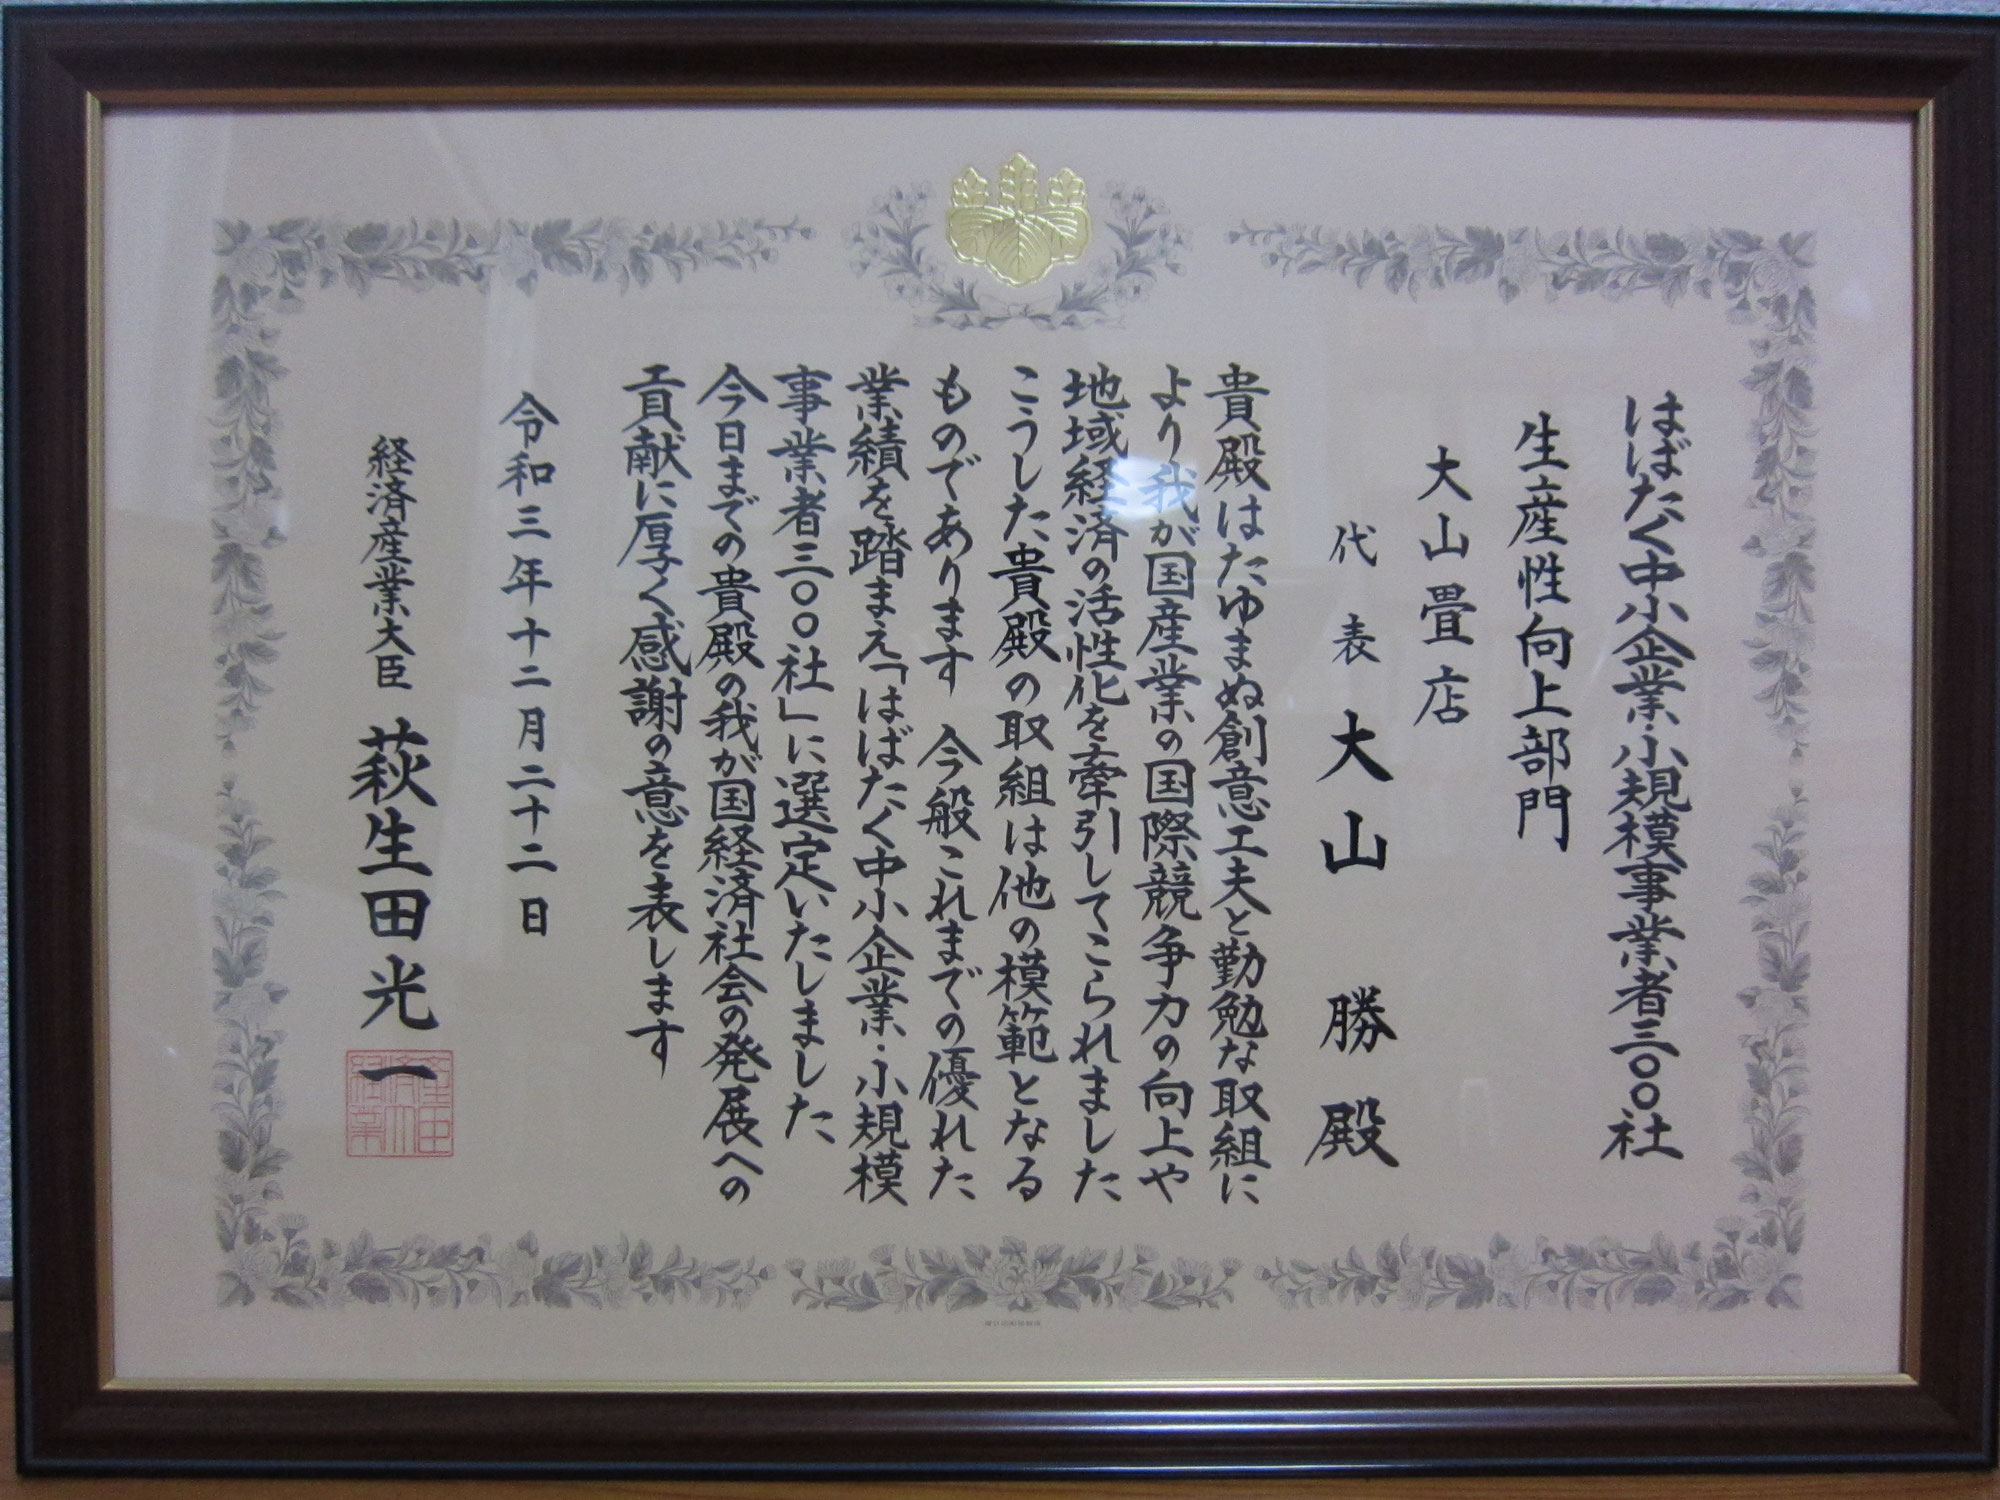 はばたく中小企業・小規模事業者三〇〇社
生産性向上部門
大山畳店
代表 大山 勝 殿
貴殿はたゆまぬ創意工夫と勤勉な取組に
より我が国産業の国際競争力の向上や
地域経済の活性化を牽引してこられました
こうした貴殿の取組は他の模範となる
ものであります 今般これまでの優れた
業績を踏まえ「はばたく中小企業・小規模
事業者三〇〇社」に選定いたしました
今日までの貴殿の我が国経済社会の発展への
貢献に厚く感謝の意を表します
令和三年十二月二十二日
経済産業大臣 萩生田光一